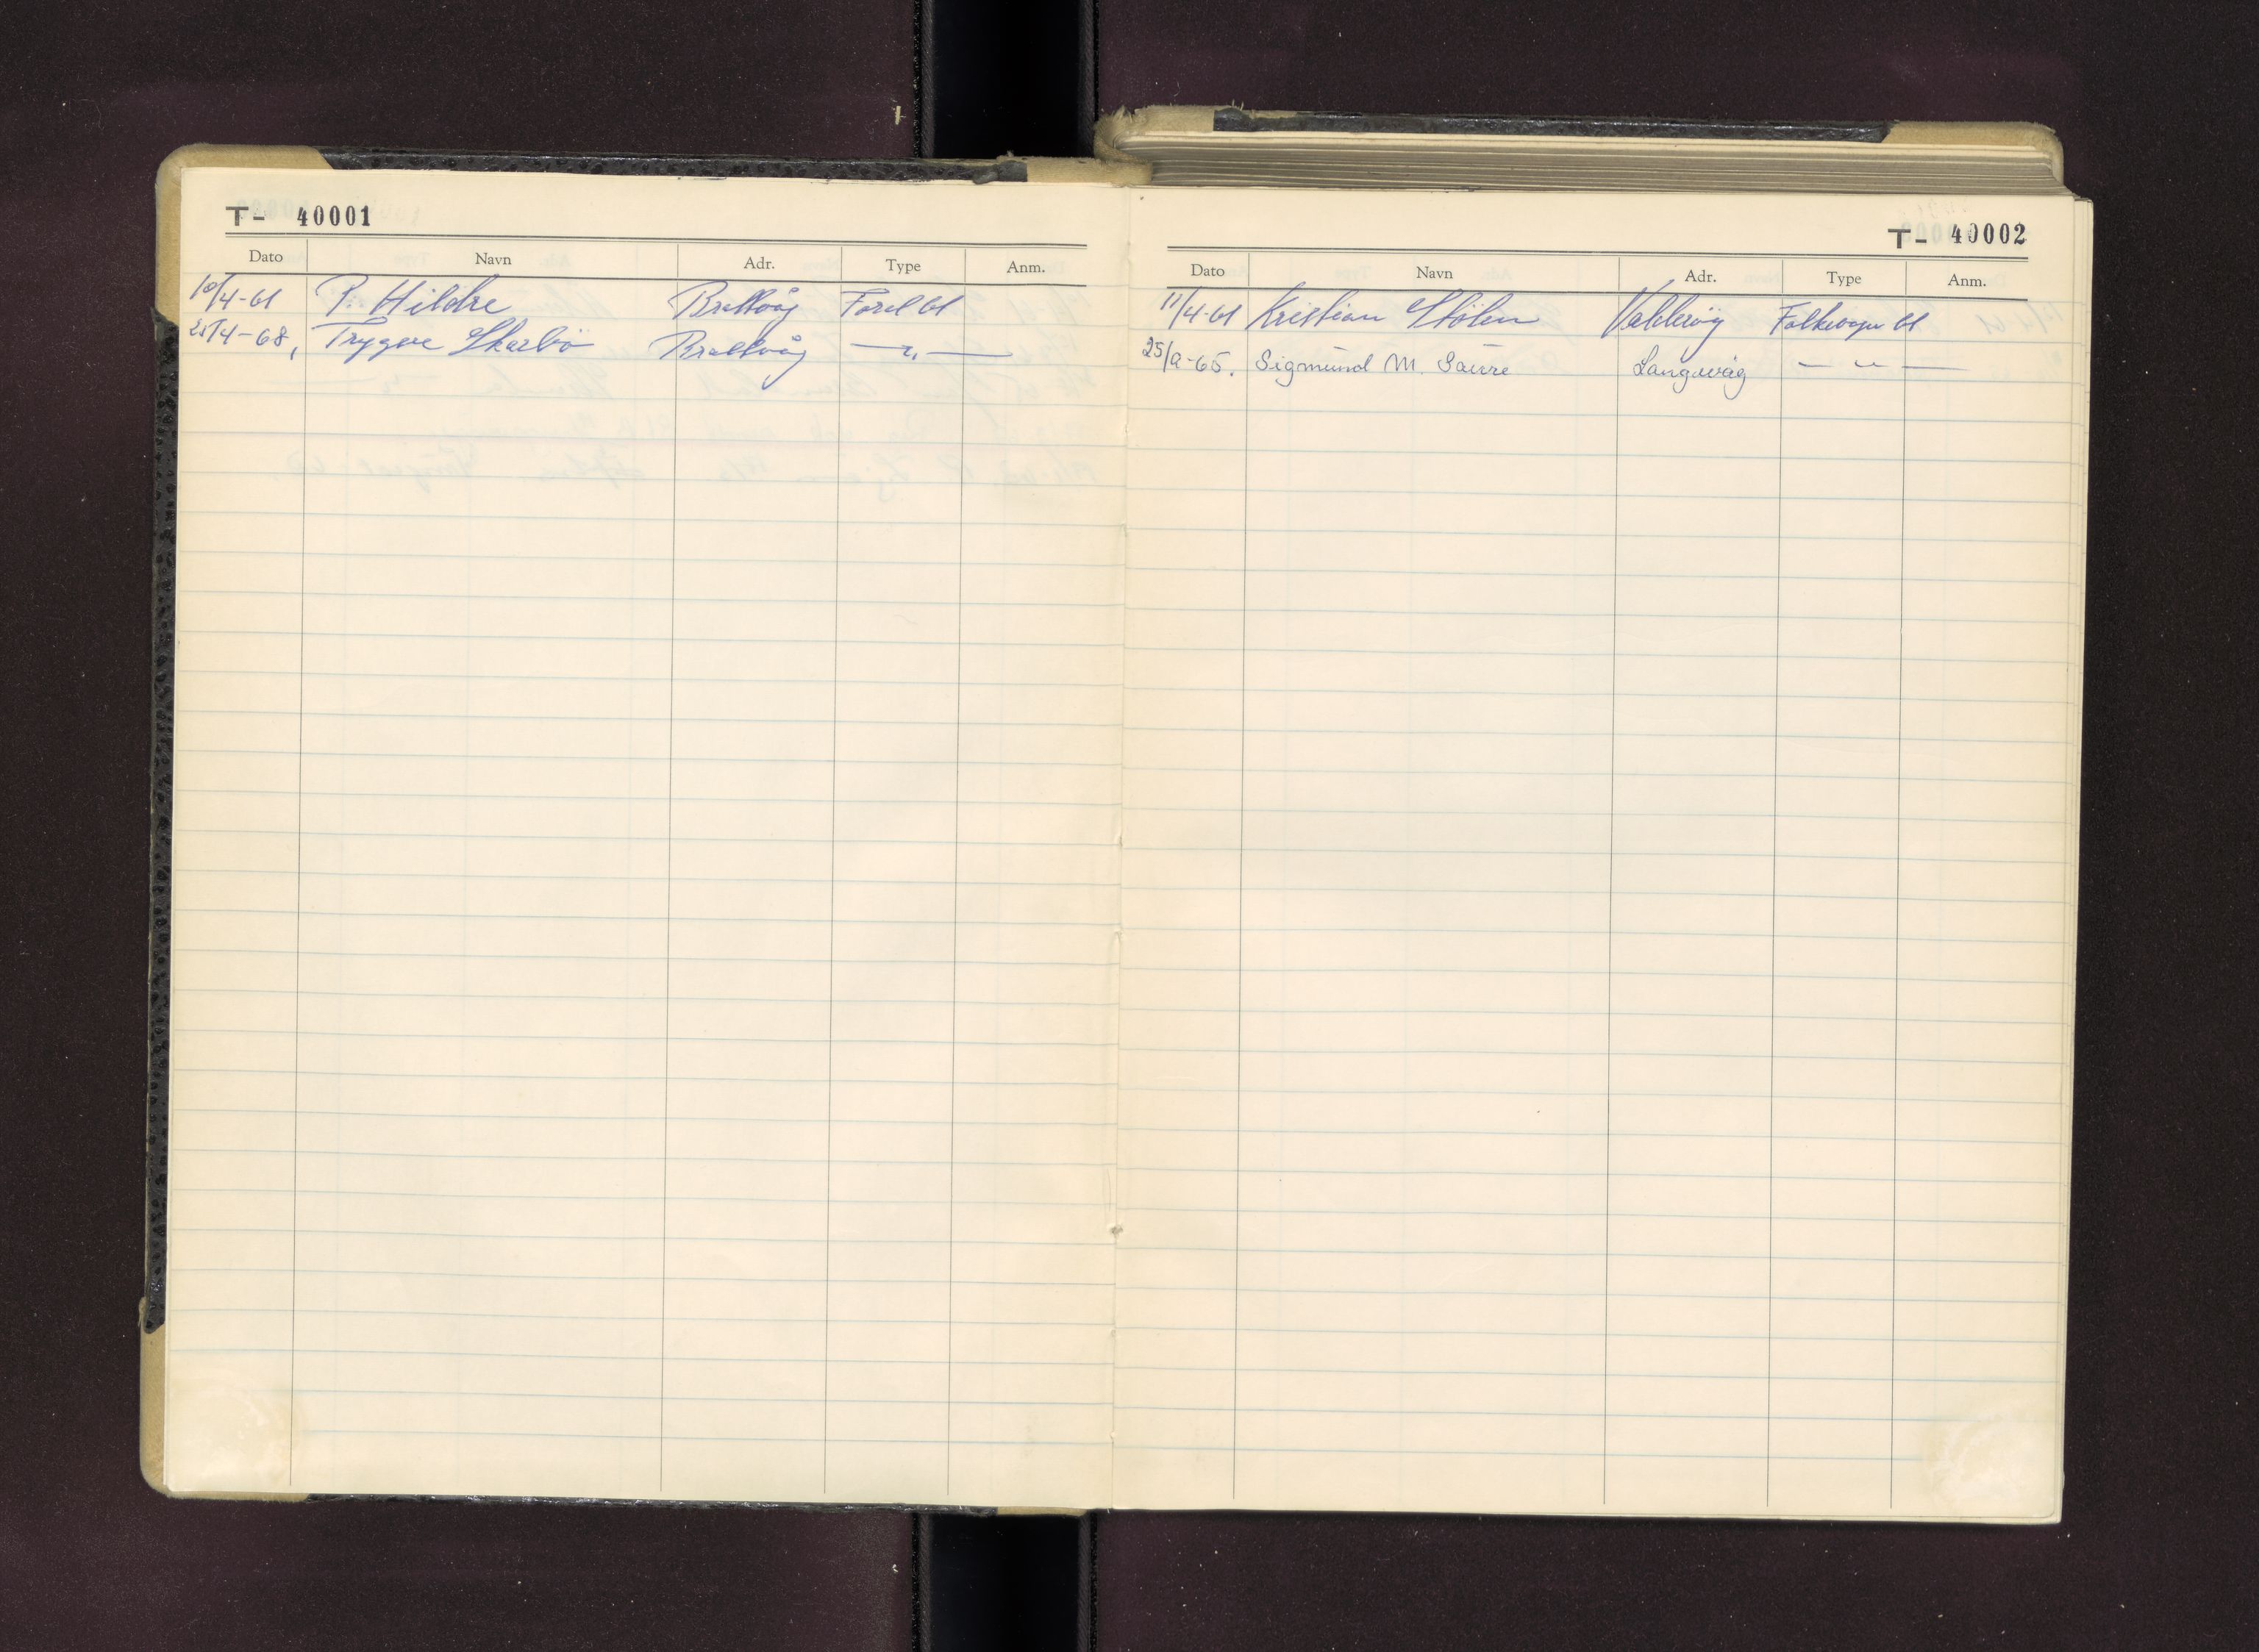 T- 40001
Dato Navn Adr. Type Anm.
10/4-61 P. Hildre Brattvåg Ford 61
25/4-68, Trygve Skarbö Brattvåg — " —
T- 40002
Dato Navn Adr. Type Anm.
11/4-61 Kristian Stölen Valderöy Folkevogn 61
25/9-65. Sigmund M. Saure Langevåg — " —